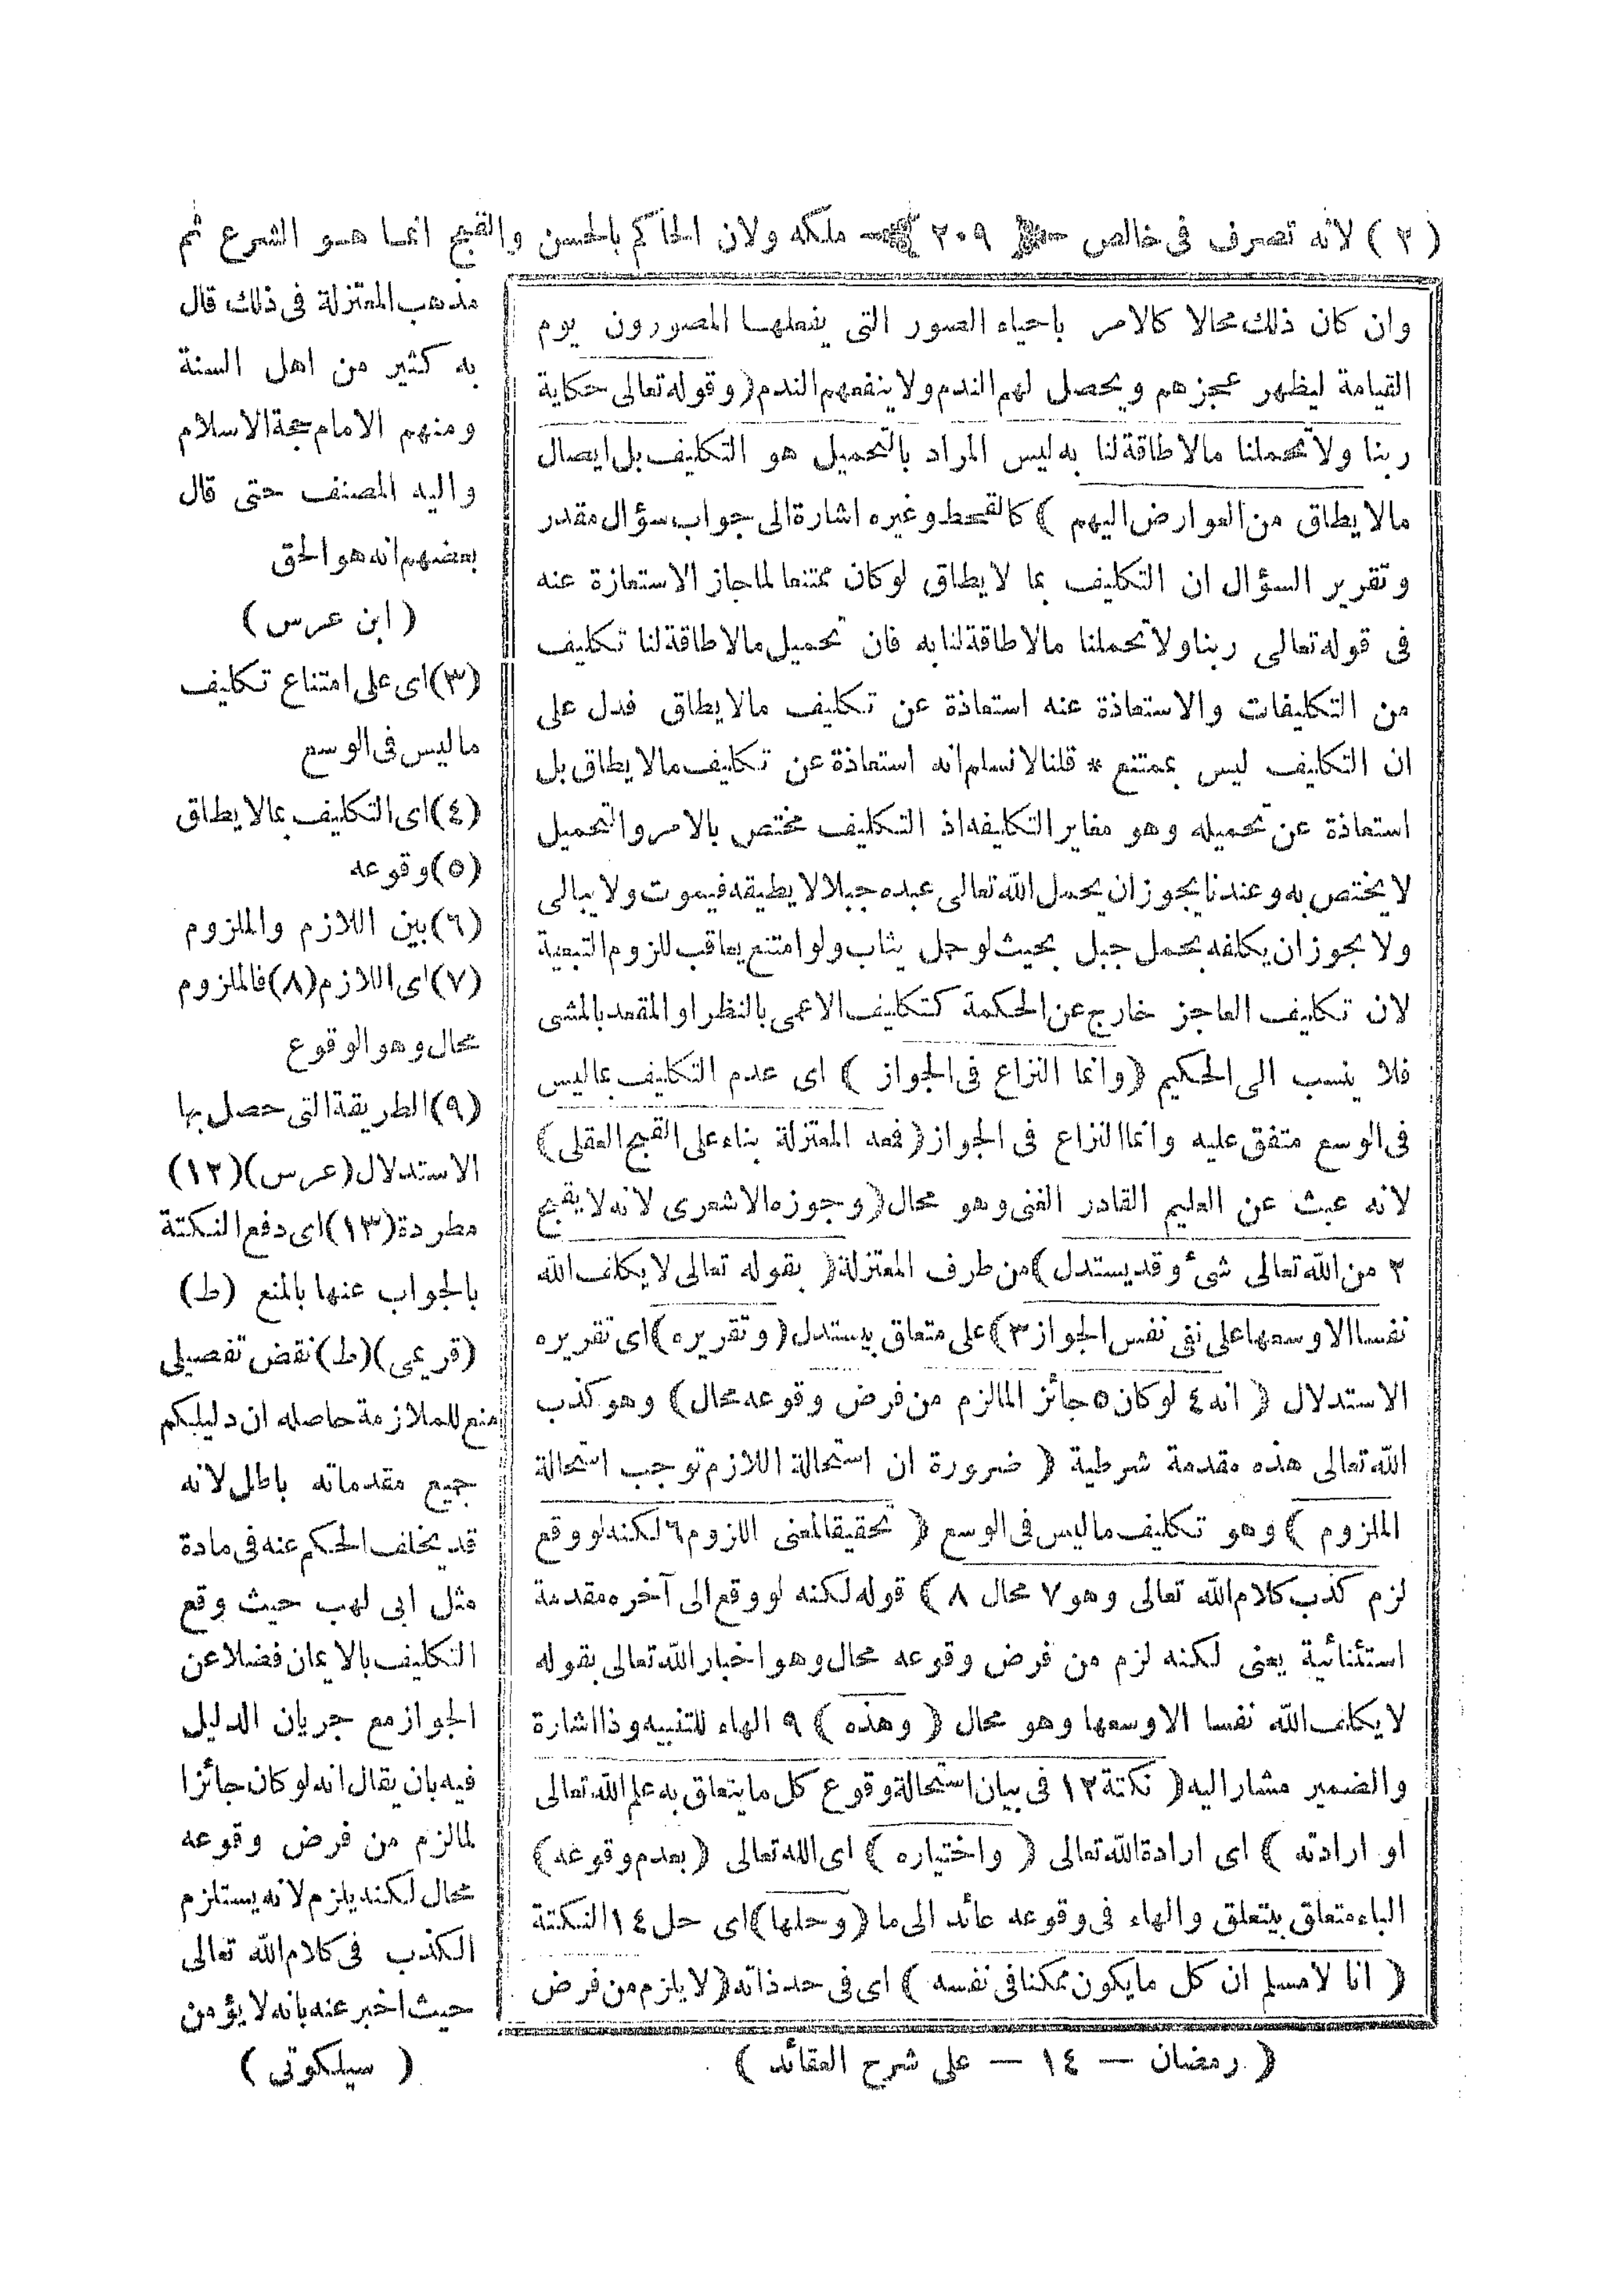 (٢) لانه تصرف فى خالص ﴿ ٢٠٩ ﴾ ملكه ولان الحاكم بالحسن والقبح انما هو الشرع ثم
وان كان ذلك محالا كالامر باحياء الصور التى يفعلها المصورون يوم
القيامة ليظهر عجزهم ويحصل لهم الندم ولا ينفعهم الندم ( وقوله تعالى حكاية
ربنا ولا تحملنا مالا طاقة لنا به ليس المراد بالتحميل هو التكليف بل ايصال
مالا يطاق من العوارض اليهم ) كالقحط وغيره اشارة الى جواب سؤال مقدر
وتقرير السؤال ان التكليف بما لا يطاق لو كان ممتنعا لما جاز الاستعازة عنه
فى قوله تعالى ربنا ولا تحملنا مالا طاقة لنا به فان تحميل مالا طاقة لنا تكليف
من التكليفات والاستعاذة عنه استعاذة عن تكليف مالا يطاق فدل على
ان التكليف ليس بممتنع * قلنا لا نسلم انه استعاذة عن تكليف مالا يطاق بل
استعاذة عن تحميله وهو مغاير التكليفه اذ التكليف مختص بالامر والتحميل
لا يختص به وعندنا يجوز ان يحمل الله تعالى عبده جبلا لا يطيقه فيموت ولا يبالى
ولا يجوز ان يكلفه بحمل جبل بحيث لو حمل يثاب ولو امتنع يعاقب للزوم التبعية
لان تكليف العاجز خارج عن الحكمة كتكليف الاعمى بالنظر او المقعد بالمشى
فلا ينسب الى الحكيم ( وانما النزاع فى الجواز ) اى عدم التكليف بما ليس
فى الوسع متفق عليه وانما النزاع فى الجواز ( فمعه المعتزلة بناء على القبح العقلى )
لانه عبث عن العليم القادر الغنى وهو محال ( وجوزه الاشعرى لانه لا يقبح
٢ من الله تعالى شئ وقد يستدل ) من طرف المعتزلة ( بقوله تعالى لا يكلف الله
نفسا الا وسعها على نفى نفس الجواز ٣ ) على متعلق بيستدل ( وتقريره ) اى تقريره
الاستدلال ( انه ٤ لو كان ٥ جائز المالزم من فرض وقوعه محال ) وهو كذب
الله تعالى هذه مقدمة شرطية ( ضرورة ان استحالة اللازم توجب استحالة
الملزوم ) وهو تكليف ما ليس فى الوسع ( تحقيقا لمعنى اللزوم ٦ لكنه لو وقع
لزم كذب كلام الله تعالى وهو ٧ محال ٨ ) قوله لكنه لو وقع الى آخره مقدمة
استثنائية يعنى لكنه لزم من فرض وقوعه محال وهو اخبار الله تعالى بقوله
لا يكلف الله نفسا الا وسعها وهو محال ( وهذه ) ٩ الهاء للتنبيه وذا اشارة
والضمير مشار اليه ( نكتة ١٢ فى بيان استحالة وقوع كل ما يتعلق به علم الله تعالى
او ارادته ) اى ارادة الله تعالى ( واختياره ) اى الله تعالى ( بعدم وقوعه )
الباء متعلق بيتعلق والهاء فى وقوعه عائد الى ما ( وحلها ) اى حل ١٤ النكتة
( انا لا نسلم ان كل ما يكون ممكنا فى نفسه ) اى فى حد ذاته ( لا يلزم من فرض
( رمضان — ١٤ — على شرح العقائد )
مذهب المعتزلة فى ذلك قال
به كثير من اهل السنة
ومنهم الامام حجة الاسلام
واليه المصنف حتى قال
بعضهم انه هو الحق
( ابن عرس )
(٣) اى على امتناع تكليف
ما ليس فى الوسع
(٤) اى التكليف بما لا يطاق
(٥) وقوعه
(٦) بين اللازم والملزوم
(٧) اى اللازم (٨) فالملزوم
محال وهو الوقوع
(٩) الطريقة التى حصل بها
الاستدلال (عرس) (١٢)
مطردة (١٣) اى دفع النكتة
بالجواب عنها بالمنع (ط)
(قريمى) (ط) نقض تفصيلى
منع للملازمة حاصله ان دليلكم
جميع مقدماته باطل لانه
قد يخلف الحكم عنه فى مادة
مثل ابى لهب حيث وقع
التكليف بالايمان فضلا عن
الجواز مع جريان الدليل
فيه بان يقال انه لو كان جائزا
لمالزم من فرض وقوعه
محال لكنه يلزم لانه يستلزم
الكذب فى كلام الله تعالى
حيث اخبر عنه بانه لا يؤمن
( سيلكوتى )